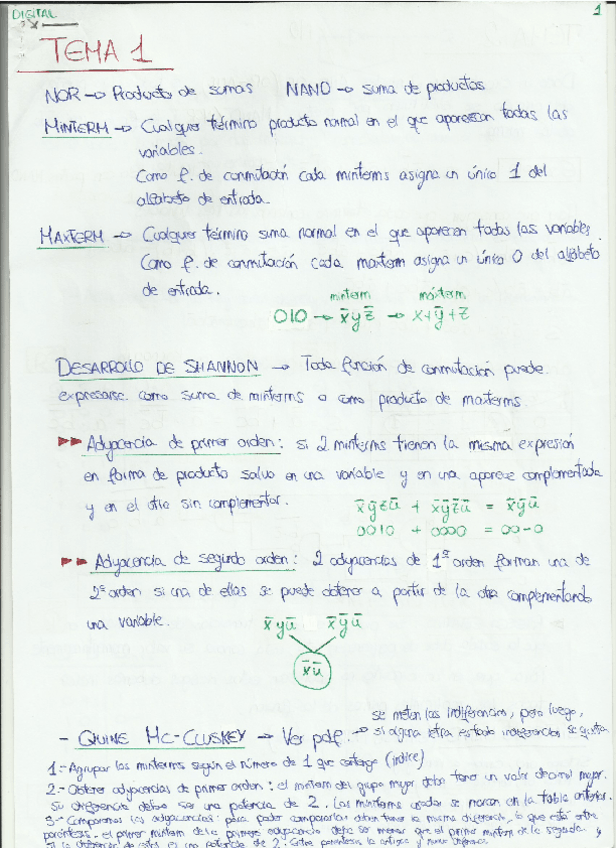 DIGITAL
1
TEMA 1
NOR → Producto de sumas NAND → suma de productos
MINTERM → Cualquier término producto normal en el que aparezcan todas las
variables.
Como f. de conmutación cada minterms asigna un único 1 del
alfabeto de entrada.
MAXTERM → Cualquier término suma normal en el que aparecen todas las variables.
Como f. de conmutación cada maxterm asigna un único 0 del alfabeto
de entrada.
minterm máxterm
010 → x̄yz̄ → x+ȳ+z
DESARROLLO DE SHANNON → Toda función de conmutación puede
expresarse como suma de minterms o como producto de maxterms.
Adyacencia de primer orden: si 2 minterms tienen la misma expresión
en forma de producto salvo en una variable y en una aparece complementada
y en el otro sin complementar.
x̄ȳzū + x̄ȳz̄ū = x̄ȳū
0010 + 0000 = 00-0
Adyacencia de segundo orden: 2 adyacencias de 1º orden forman una de
2º orden si una de ellas se puede obtener a partir de la otra complementando
una variable.
x̄yū x̄ȳū
x̄ū
se meten las indiferencias, pero luego,
- QUINE MC-CLUSKEY → Ver pdf. → si alguna letra es todo indiferencias se quita
1.- Agrupar los minterms según el número de 1 que contenga (índice)
2.- Obtener adyacencias de primer orden: el minterm del grupo mayor debe tener un valor decimal mayor.
Su diferencia debe ser una potencia de 2. Los minterms usados se marcan en la tabla anterior.
3.- Comparamos las adyacencias: para poder compararlas deben tener la misma diferencia, lo que está entre
paréntesis. el primer minterm de la primera adyacencia debe ser menor que el primer minterm de la segunda y
si la diferencia de estos es una potencia de 2: Entre paréntesis la antigua y nueva diferencia.